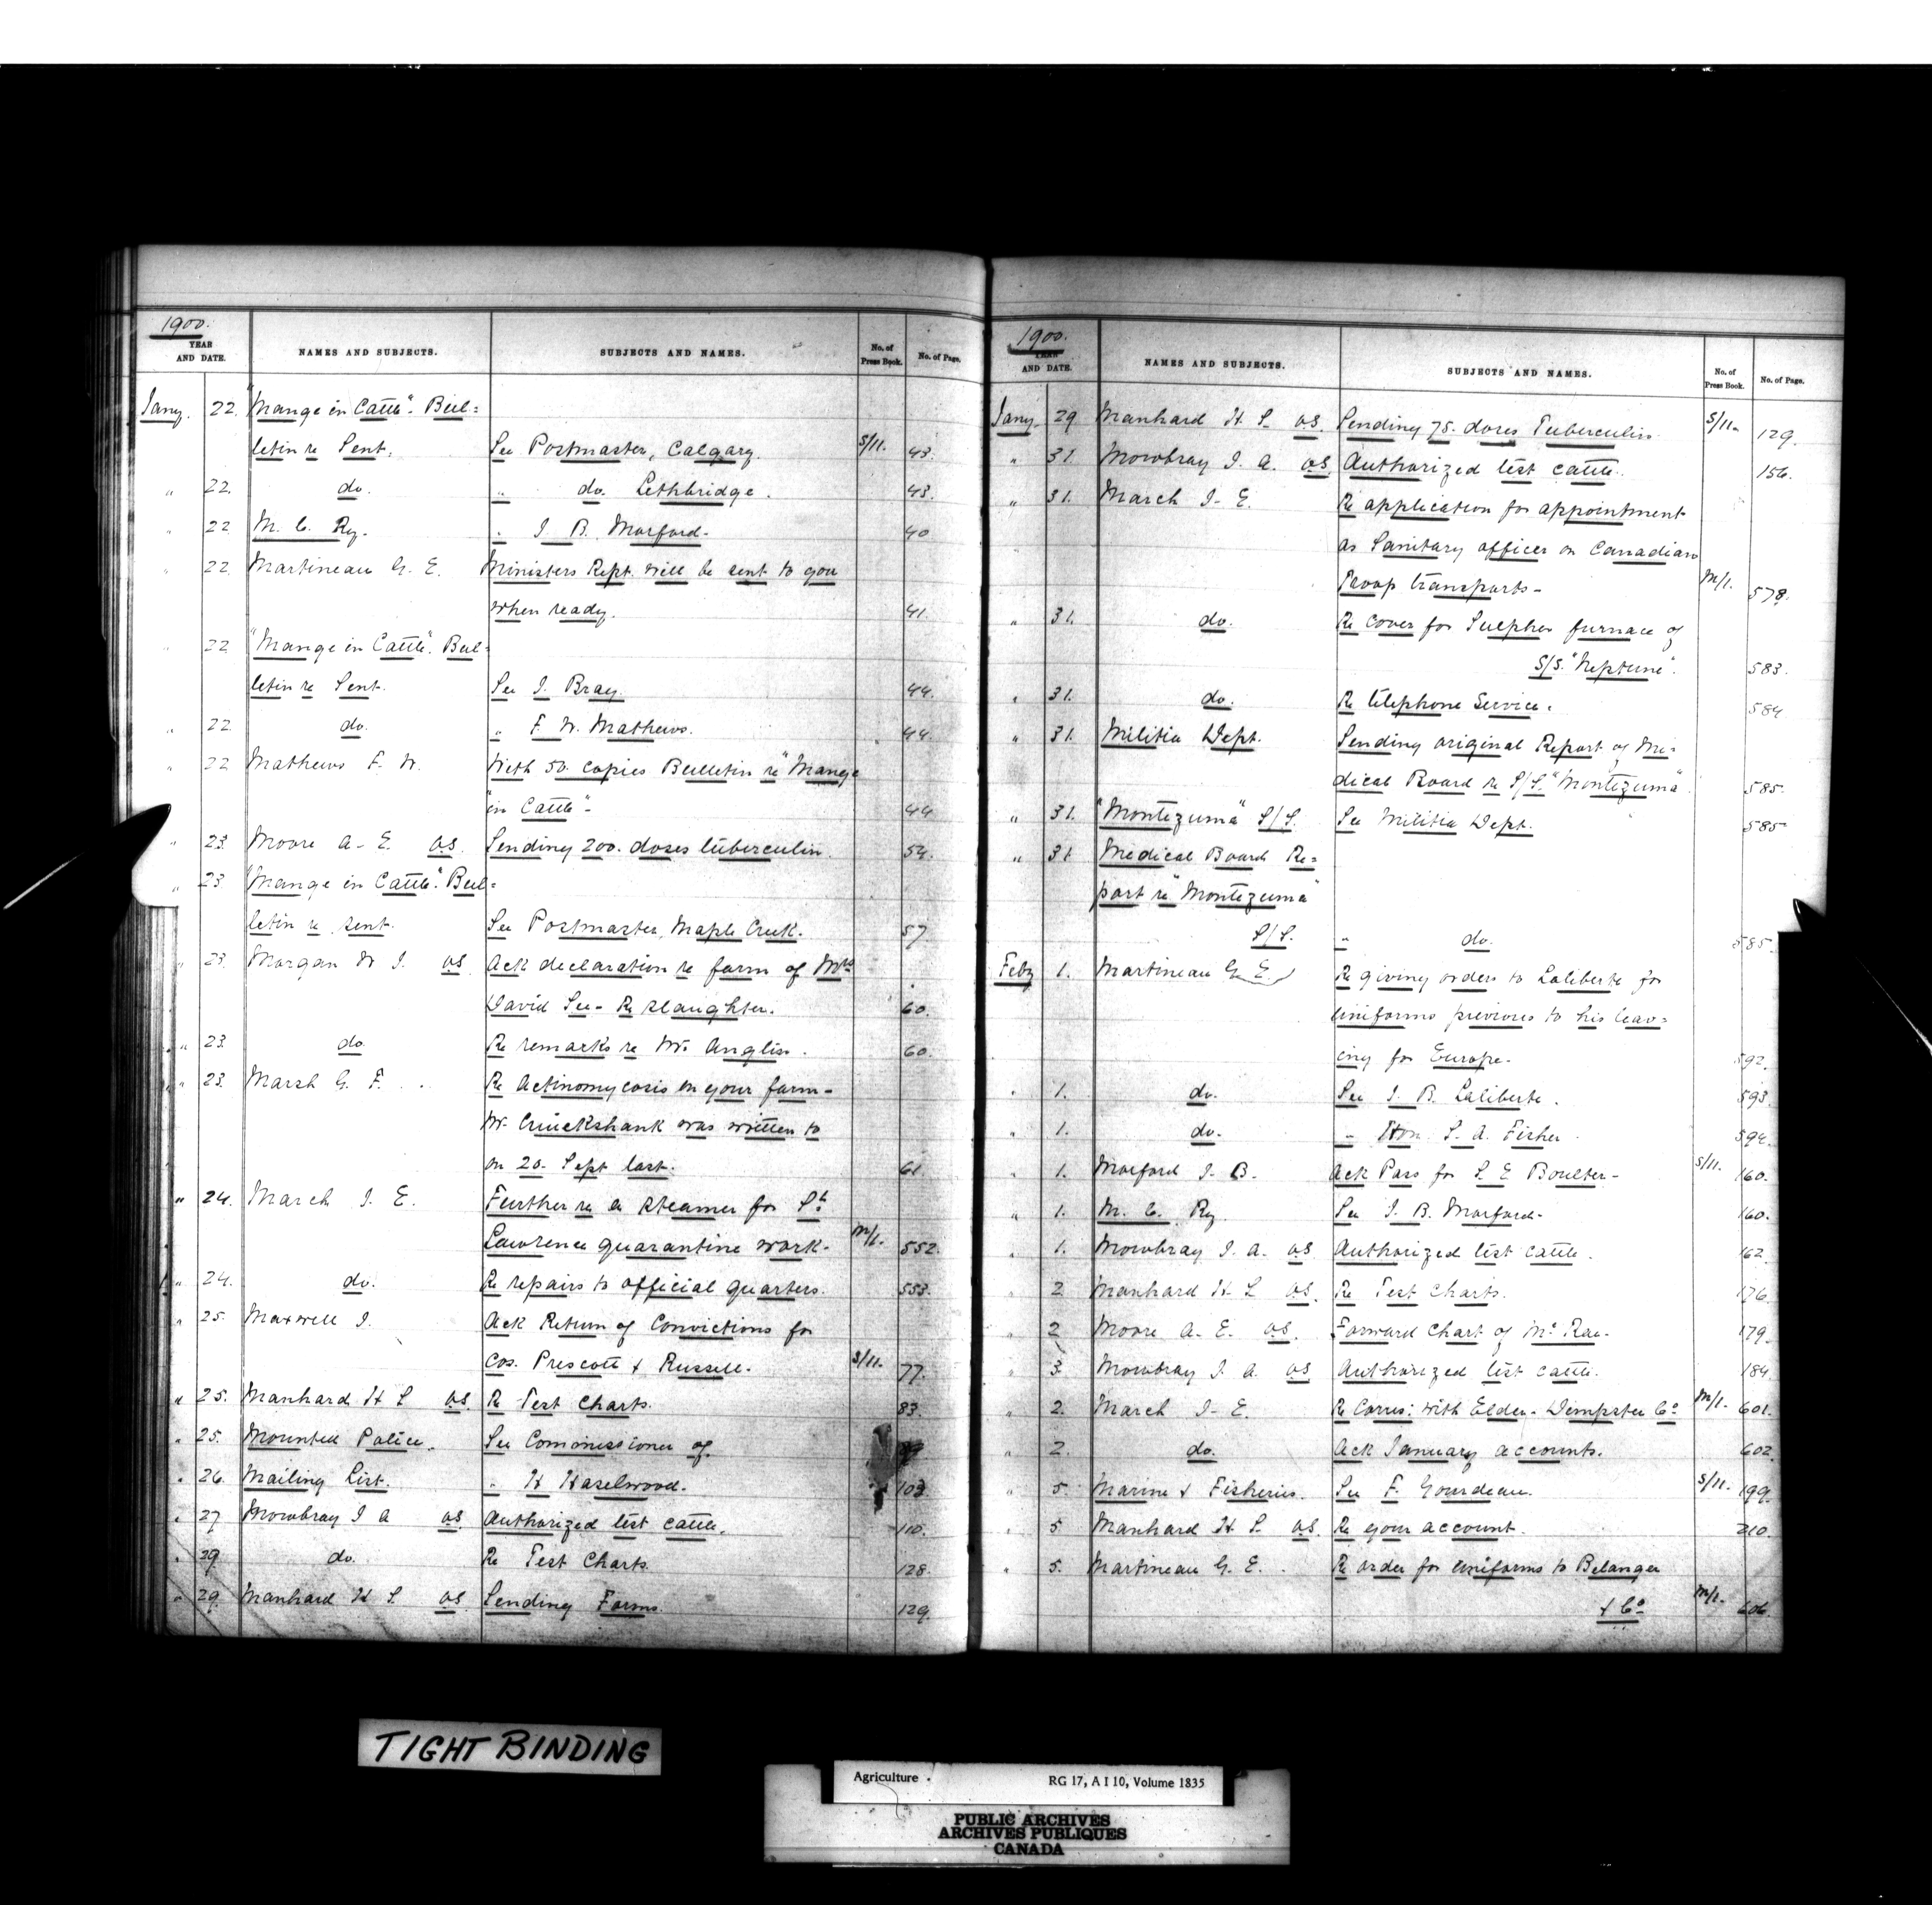 1900.
YEAR AND DATE. NAMES AND SUBJECTS. SUBJECTS AND NAMES. No. of Press Book. No. of Page.
Jany. 22. "Mange in Cattle". Bul=
letin re Sent. See Postmaster, Calgary. S/11. 43.
" 22. do. " do. Lethbridge. 43.
" 22 M. C. Ry. " J. B. Morford. 40
" 22 Martineau G. E. Ministers Rept. will be sent to you
when ready. 41.
" 22 "Mange in Cattle". Bul=
letin re Sent. See J. Bray. 44.
" 22 do. " F. W. Mathews. 44.
" 22 Mathews F. W. With 50 copies Bulletin re "Mange
"in Cattle"- 44
" 23 Moore A. E. V.S. Sending 200. doses tuberculin. 54.
" 23 "Mange in Cattle". Bul=
letin re sent. See Postmaster, Maple Creek. 57.
" 23. Morgan W. J. V.S. Ack declaration re farm of Mrs
David See - Re slaughter. 60.
" 23. do. Re remarks re Mr. Anglin. 60.
" 23. Marsh G. F. Re Actinomycosis on your farm-
Mr. Cruickshank was written to
on 20. Sept last. 61.
" 24. March J. E. Further re a steamer for St.
Lawrence quarantine work. M/1. 552.
" 24. do. Re repairs to official quarters. 553.
" 25. Maxwell J. Ack Return of Convictions for
Cos. Prescott & Russell. S/11. 77.
" 25. Manhard H S V.S. Re Test Charts. 83.
" 25. Mounted Police. See Commissioner of.
" 26. Mailing List. " H Hazelwood. 103.
" 27 Mowbray J A V.S. Authorized test cattle. 110.
" 29 do. Re Test Charts. 128.
" 29. Manhard H S V.S. Sending Forms. 129.
1900.
YEAR AND DATE. NAMES AND SUBJECTS. SUBJECTS AND NAMES. No. of Press Book. No. of Page.
Jany 29 Manhard H. S. V.S. Sending 75. doses Tuberculin. S/11. 129.
" 31. Mowbray J. A. V.S. Authorized test cattle. 156.
" 31. March J. E. Re application for appointment
as Sanitary officer on Canadian
Troop transports- M/1. 578.
" 31. do. Re cover for Sulpher furnace of
S/S. "Neptune". 583.
" 31. do. Re telephone Service. 584
" 31. Militia Dept. Sending original Report of Me=
dical Board re S/S. "Montezuma" 585.
" 31. "Montezuma" S/S. See Militia Dept. 585
" 31 Medical Board Re=
port re "Montezuma"
S/S. " do. 585.
Feby 1. Martineau G. E. Re giving orders to Laliberte for
uniforms previous to his leav=
ing for Europe. 592.
" 1. do. See J. B. Laliberte. 593.
" 1. do. " Hon. S. A. Fisher. 594.
" 1. Morford J. B. Ack Pass for S. E Boulter- S/11. 160.
" 1. M. C. Ry See J. B. Morford. 160.
" 1. Mowbray J. A. V.S. Authorized test cattle. 162.
" 2 Manhard H. S V.S. Re Test Charts. 176.
" 2 Moore A. E. V.S. Forward Chart of Mc Rae. 179.
" 3. Mowbray J. A. V.S Authorized test cattle. 184.
" 2. March J. E. Re Corres: with Elder-Dempster Co M/1. 601.
" 2. do. Ack January accounts. 602.
" 5 Marine & Fisheries. See F. Gourdeau. S/11. 199.
" 5 Manhard H. S. V.S. Re your account. 210.
" 5. Martineau G. E. Re order for uniforms to Belanger
& Co M/1. 606.
TIGHT BINDING
Agriculture. RG 17, A I 10, Volume 1835
PUBLIC ARCHIVES
ARCHIVES PUBLIQUES
CANADA